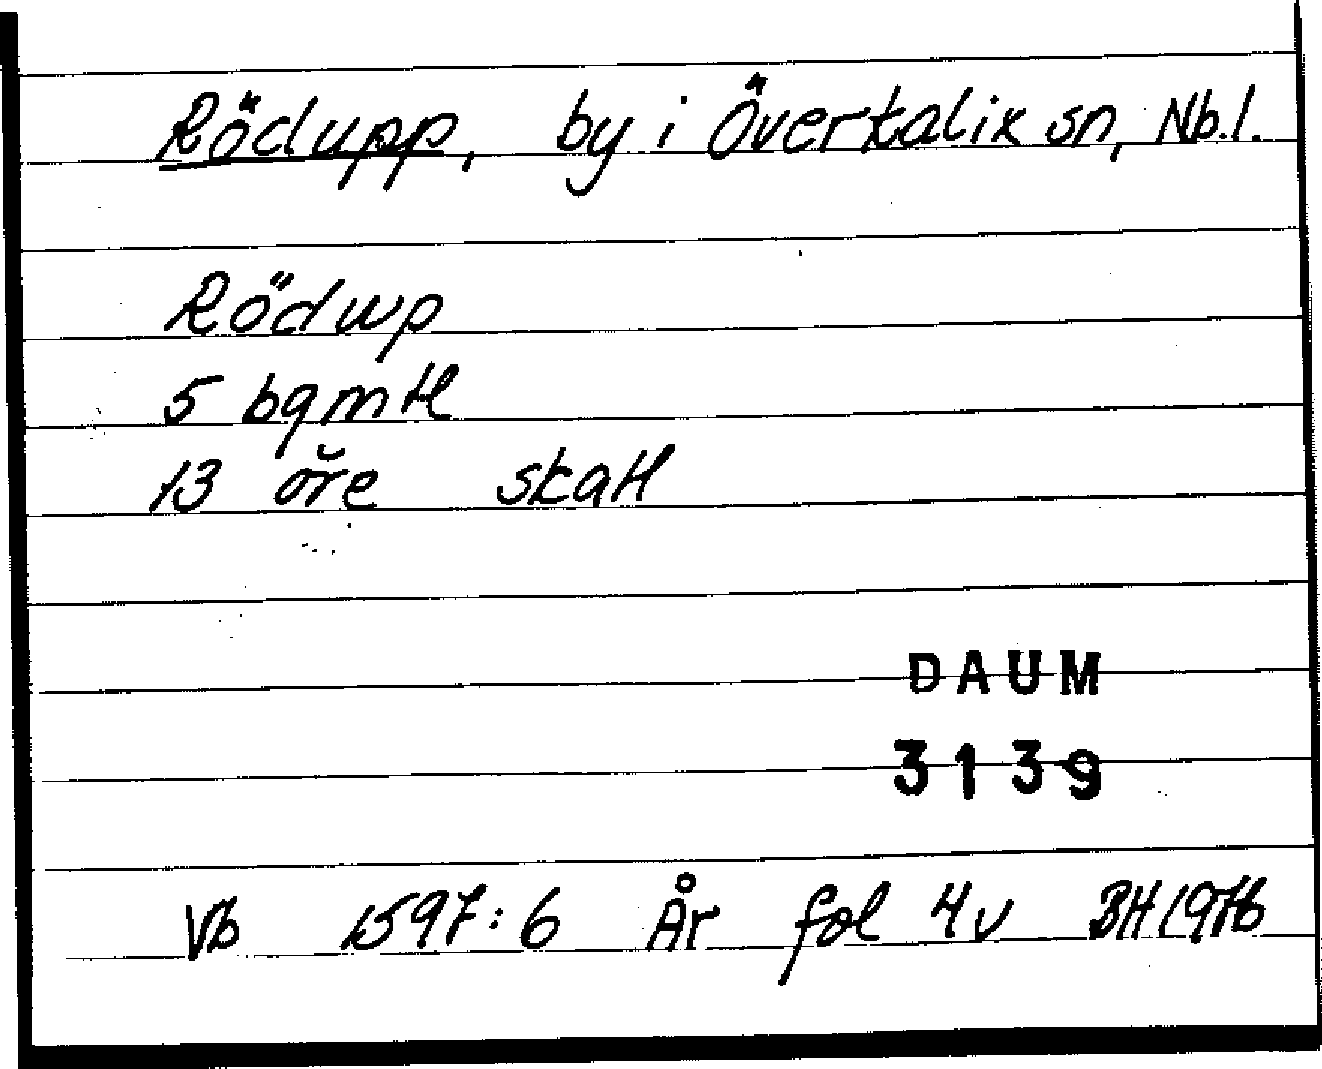 Rödupp, by i Överkalix sn, Nb.l.
Rödwp
5 bgmtl
13 öre skatt
DAUM
3139
Vb 1597:6 År fol 4v BH 1976